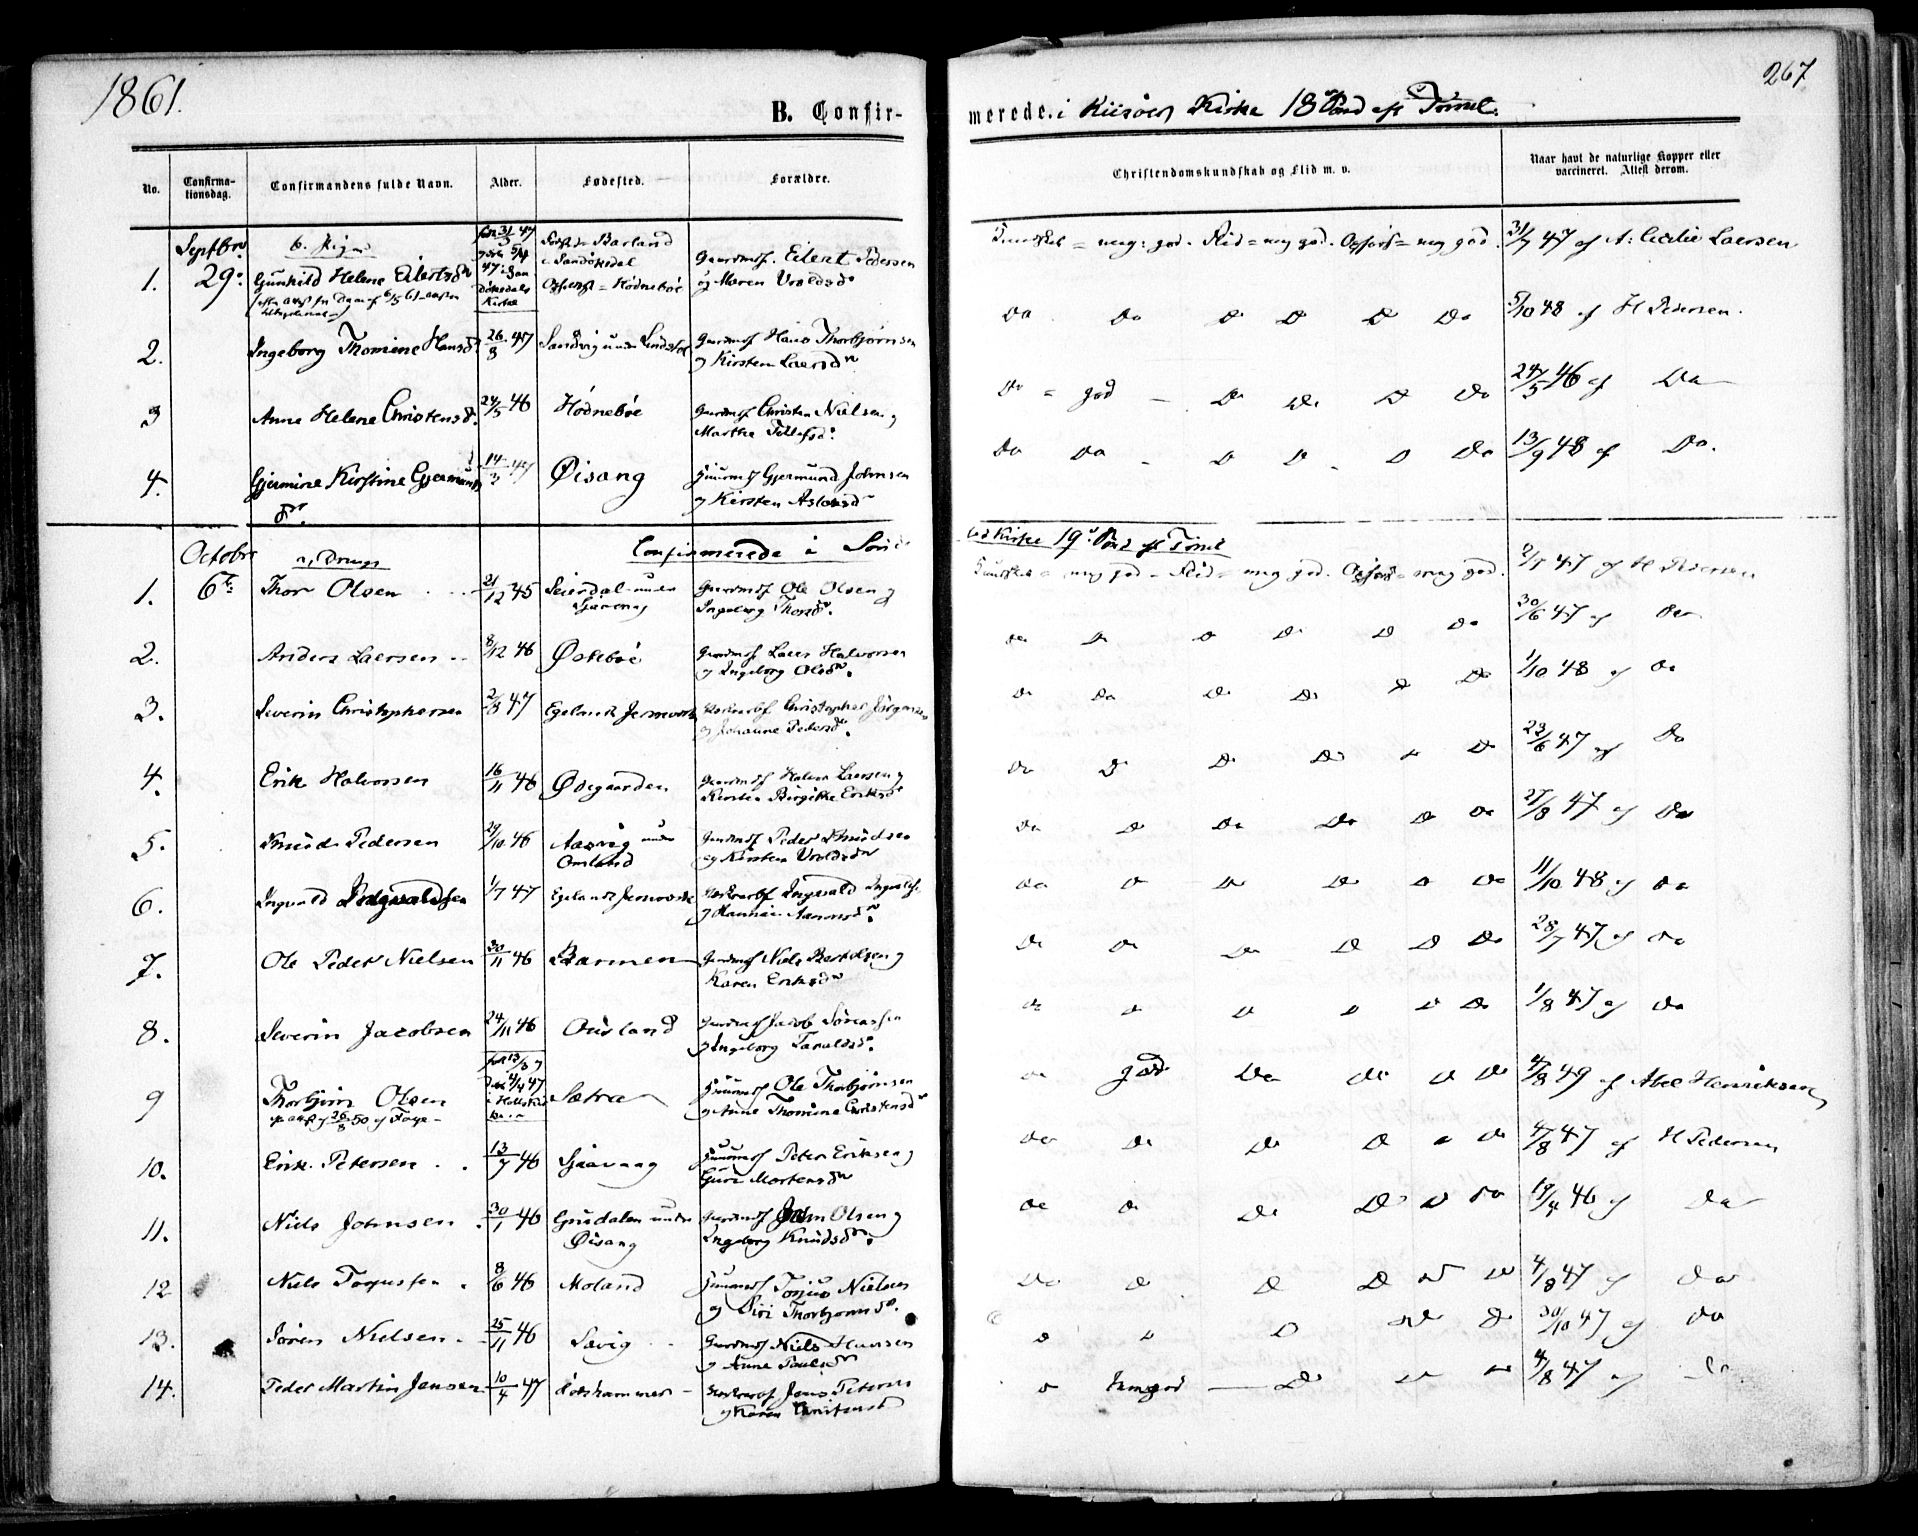 1861.
267
B. Confir-
merede. i Riisøer Kirke 18de Sønd eft Trinit.
No.
Confirma-
tionsdag.
Confirmandens fulde Navn.
Alder.
Fødested.
Forældre.
Christendomskundskab og Flid m. v.
Naar havt de naturlige Kopper eller
vaccineret. Attest derom.
Septbr b. Piger
1. 29. Gunhild Helene Eilertsd Barland i Sandøkedal Opholdst = Hødnebøe Gaardmd. Eilert Pedersen
og Maren Vroldsdr
Kundskab = meg: god. Flid = meg god. Opførs = meg god. 31/7 47 af A: Cecilie Laersen
2. Ingeborg Thomine Hansd. 26/8 47 Sandvig under Lindstøl Gaardmd Hans Thorbjørnsen
og Kirsten Laersdr
Do Do D D D Do 5/10 48 af H Pedersen.
3 Anne Helene Christensd. 24/5 46 Hødnebøe Gaardmd Christen Nielsen og
Marthe Tellefsd.
Do = god - D D D Do 24/5 46 af Do
4. Gjermine Kirstine Gjermunds 14/3 47 Øisang Huusmd Gjermund Johnsen
dr. og Kirsten Aslaksd
Do Do - D D - D Do 13/9 48 af Do.
Octobr a, Drenge Confirmerede i Sønde-
leds Kirke 19de Sønd eft Trinit
1. 6te Thor Olsen 21/12 45 Seierdal under Gaardmd Ole Olsen og
Ingeborg Thorsdr.
Kundskab = meg god - Flid = meg god. Opførs = meg god. 2/7 47 af H Pedersen
2. Anders Laersen 8/12 46 Østebøe Gaardmd Laers Halvorsen
og Ingeborg Olsdr.
Do D D D D Do 30/6 47 af Do
3. Severin Christophersen 2/8 47 Egelands Jernverk Christopher Jørgensen
og Johanne Pedersdr.
D Do D D D Do 1/10 48 af Do
4. Erik Halvorsen 16/11 46 Øsegaarden Gaardmd Halvor Laersen og
Kirsten Birgitte Eriksd
Do D D D D D 23/6 47 af Do
5. Knud Pedersen 29/10 46 Aasvig under
Omland
Gaardmd Peder Knudsen
og Kirsten Vroldsdr
Do D Do Do D Do 27/8 47 af Do
6. Ingvald Ingvaldsen 1/7 47 Egelands Jernverk Ingvald Ingvalds.
og
Do D D D D Do 11/10 48 af Do
7. Ole Peder Nielsen 30/11 46 Barmen Gaardmd Niels Bertelsen og
Karen Eriksdr
D D D D D Do 28/7 47 af Do
8. Severin Jacobsen 24/11 46 Ourland Gaardmd Jacob
og Ingeborg Taraldsd.
Do D D D D Do 1/8 47 af Do
9 Thorbjørn Olsen Sætra Huusmd Ole Thorbjørnsen
og Anne Thomine Christensd
D god Do D D D 4/8 49 af Abel Henriksen
10. Erik Petersen 13/7 46 Sjaavaag Huusmd Peter Eriksen og
Guri Mortensdr
Do D D D D D 4/8 47 af H Pedersen
11. Niels Johnsen 30/1 46 Grusdalen under
Øisang
Gaardmd John Olsen og
Ingeborg Knudsdr.
Do D D D D Do 19/4 46 af Do
12 Niels Torjussen 8/6 46 Moland Huusmd Torjus Nielsen
og Siri Thorbjørnsdr.
Do D D D D D 4/8 47 af Do
13. Søren Nielsen 25/11 46 Savig Gaardmd Niels Hansen
og Anne Poulsdr
D D D D D 30/10 47 af Do
14. Peder Martin Jensen 10/4 47 Jens Petersen
og Karen Christensd
D temgod D D D 4/8 47 af Do.